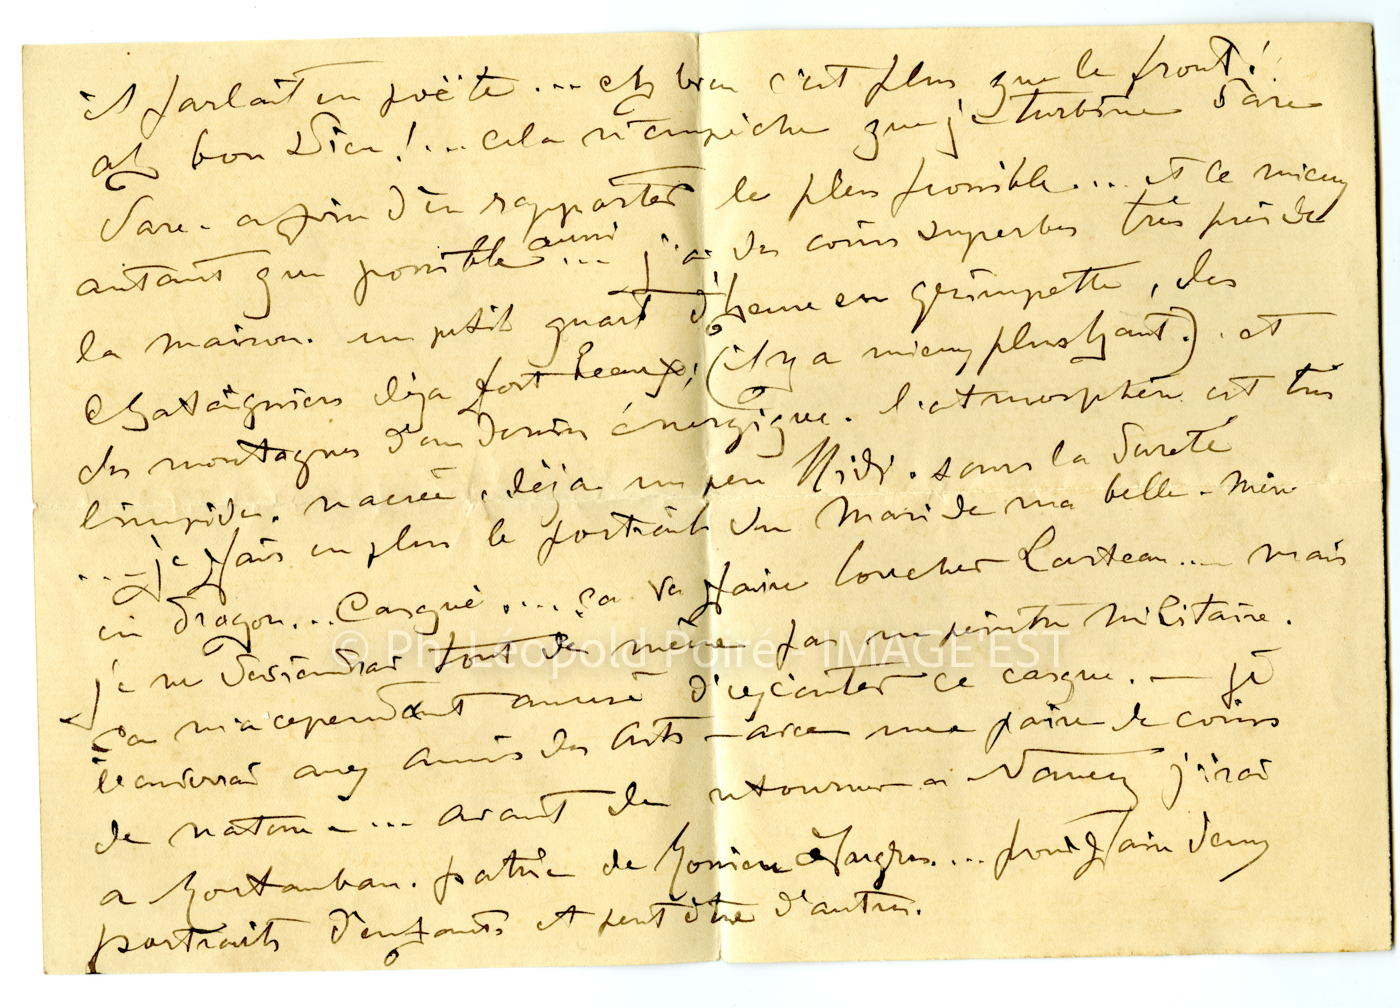 il parlait en poëte ... eh bien c'est plus que le front!
ah bon Dieu! ... cela n'empêche que je turbine dare
dare. afin d'en rapporter le plus possible ... et le mieux
autant que possible aussi ... j'ai des coins superbes très près de
la maison. un petit quart d'heure en grimpette, des
chataigniers déja fort beaux, (il y a mieux plus haut.) et
des montagnes d'un dessin énergique. l'atmosphère est très
limpide. nacrée, déja un peu Midi. sous la dureté
... je fais en plus le portrait du Mari de ma belle-mère
en dragon ... Casqué, .... ça va faire loucher .... mais
je ne deviendrai tout de même pas un peintre militaire.
ça m'a cependant amusé d'exécuter ce casque. — je
l'enverrai aux Amis des Arts — avec une paire de coins
de nature — ... avant de retourner à Nancy j'irai
a Montauban. patrie de Monsieur Ingres. ... pour faire deux
portraits d'enfants et peut être d'autres.
© Ph. Léopold Poiré - IMAGE EST